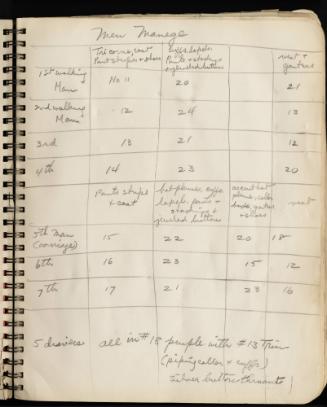 Men Manege
Tricorns, coat
Pant stripes + shoes
cuffs, lapels
Pants + stockings +
jeweled buttons
vest +
gaiters
1st walking
Man
No 11
20
21
2nd walking
Man
12
24
13
3rd
13
21
12
4th
14
23
20
Pants stripe
+ coat
hat plumes, cuffs
lapels, pants +
stockings +
jeweled buttons
accent hat
plume, collar
gaiters
+ shoes
vest
5th Man
(carriage)
15
22
20
18
6th
16
23
15
12
7th
17
21
23
16
5 drivers all in #18 purple with #13 Trim
(piping collar + cuffs)
silver buttons